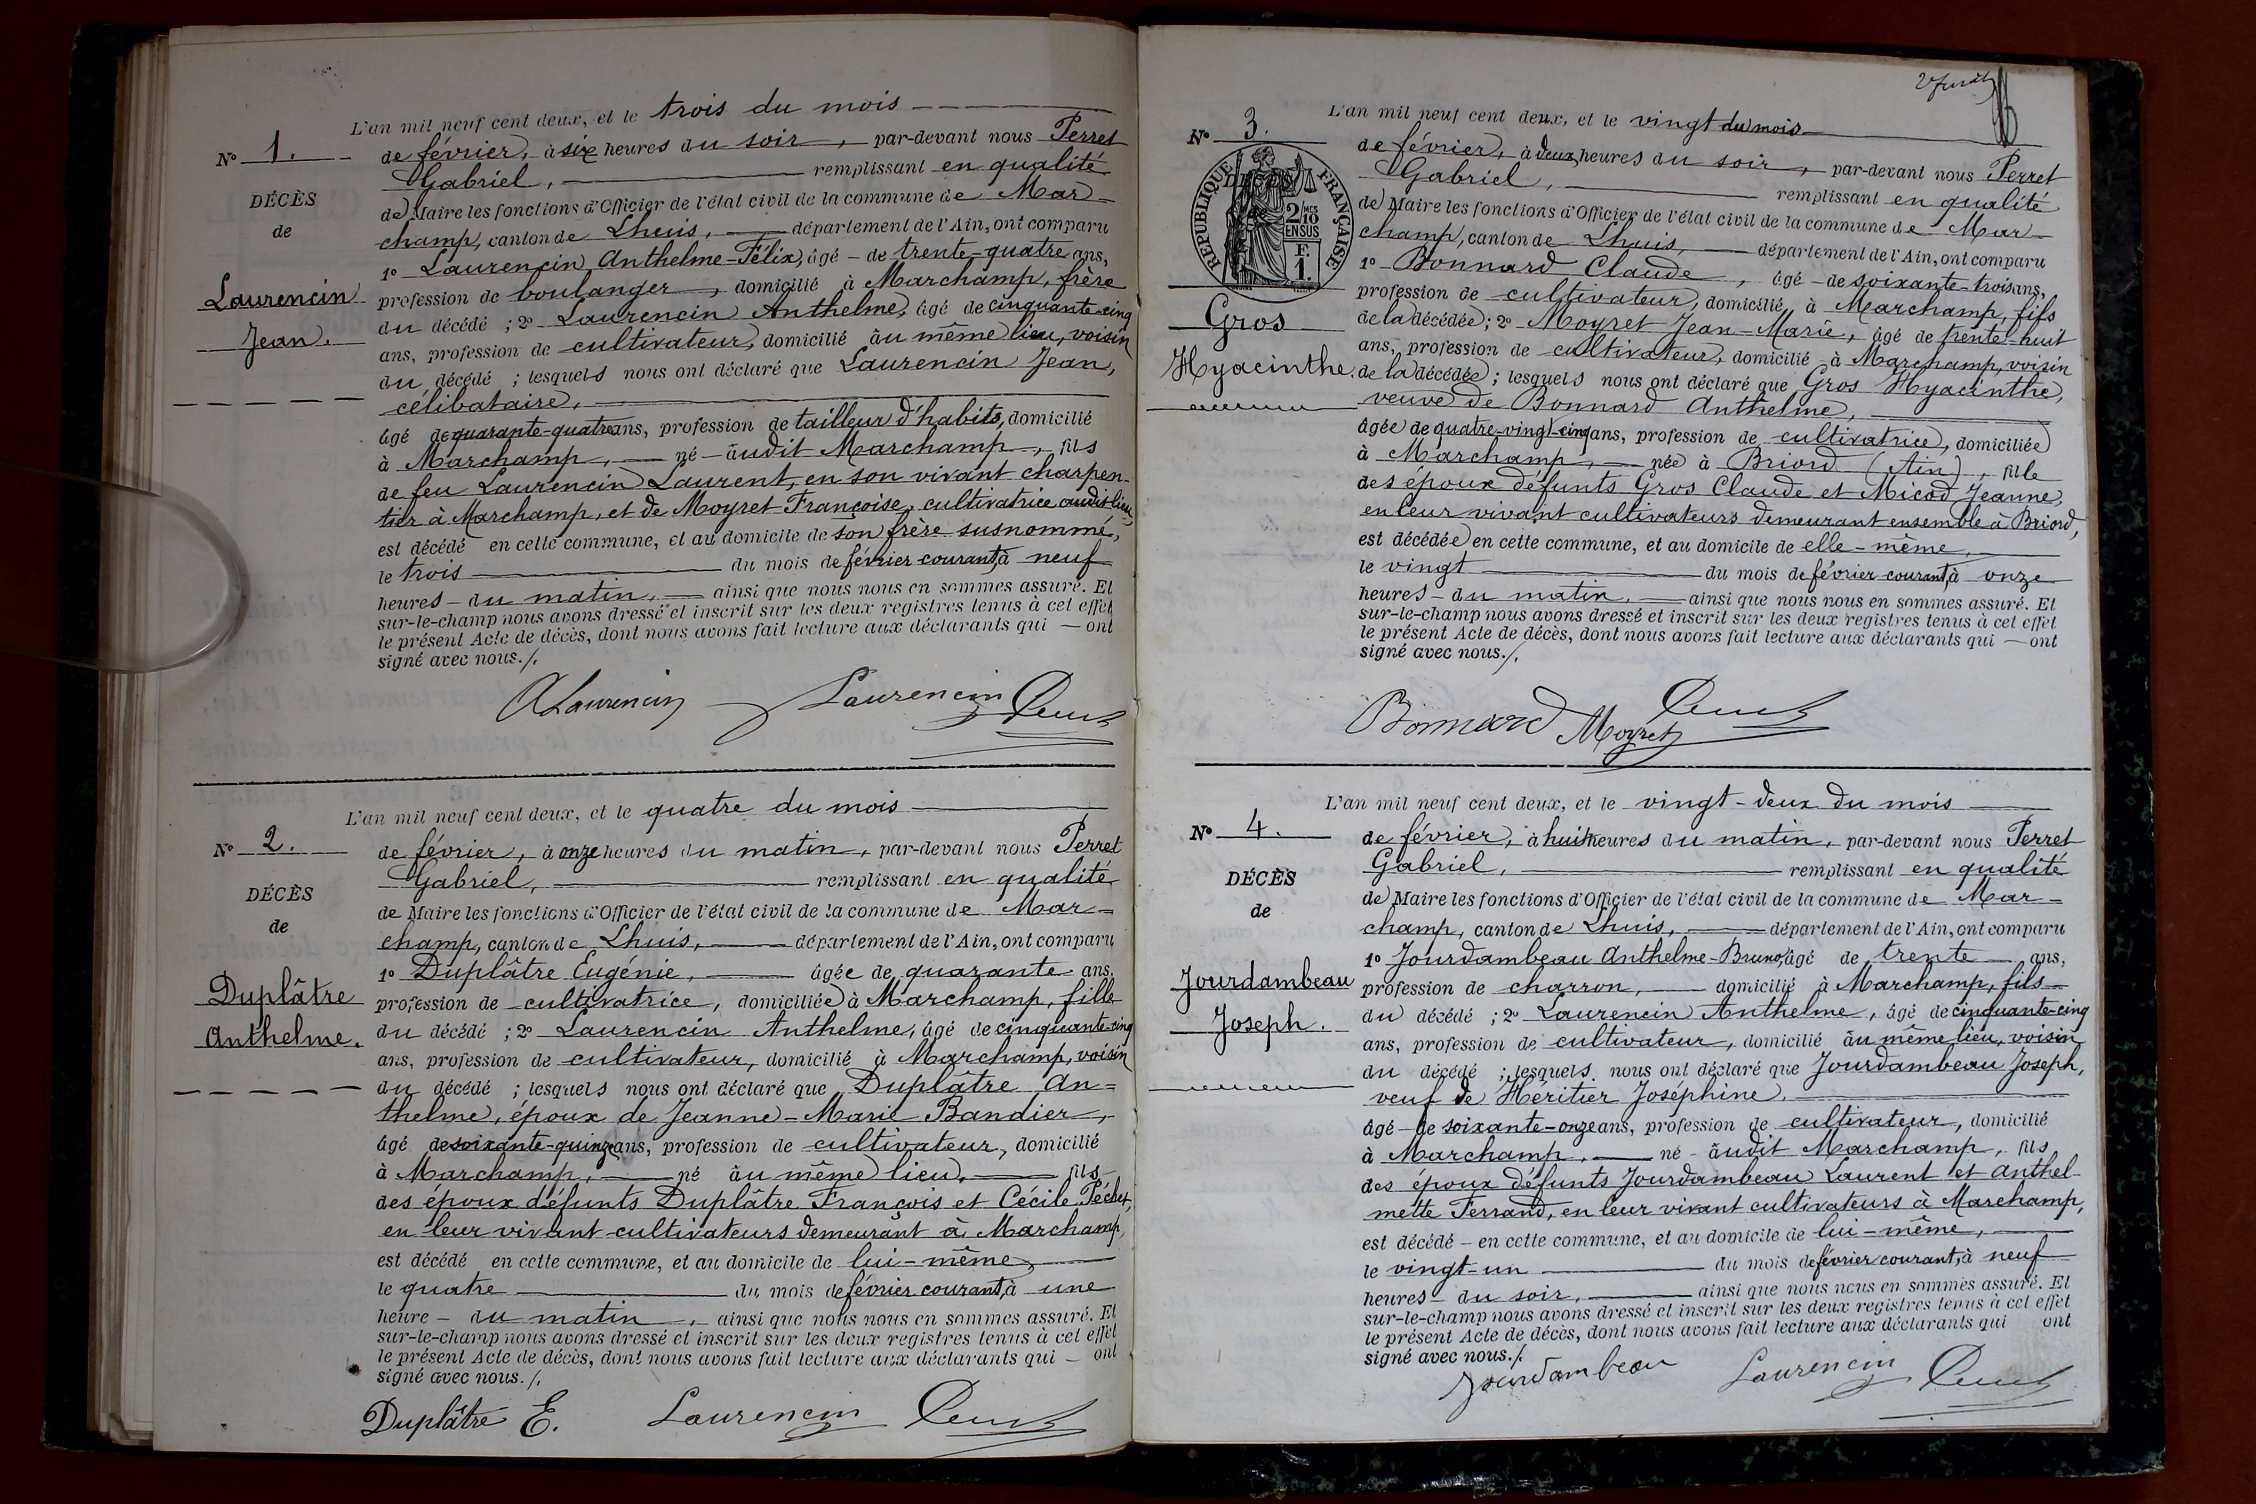 L'an mil neuf cent deux, et le trois du mois
N° 1.
de février, à six heures du soir, par-devant nous Perret
Gabriel, remplissant en qualité
DÉCÈS
de Maire les fonctions d'Officier de l'état civil de la commune de Mar-
de
champ, canton de Lhuis, département de l'Ain, ont comparu
1° Laurencin Anthelme-Félix, âgé de trente-quatre ans,
Laurencin
profession de boulanger, domicilié à Marchamp, frère
du décédé ; 2° Laurencin Anthelme, âgé de cinquante-cinq
Jean.
ans, profession de cultivateur, domicilié au même lieu, voisin
du décédé ; lesquels nous ont déclaré que Laurencin Jean,
célibataire,
âgé de quarante-quatre ans, profession de tailleur d'habits, domicilié
à Marchamp, né audit Marchamp, fils
de feu Laurencin Laurent, en son vivant charpen-
tier à Marchamp, et de Moyret Françoise, cultivatrice audit lieu,
est décédé en cette commune, et au domicile de son frère susnommé,
le trois du mois de février courant, à neuf
heures du matin, ainsi que nous nous en sommes assuré. Et
sur-le-champ nous avons dressé et inscrit sur les deux registres tenus à cet effet
le présent Acte de décès, dont nous avons fait lecture aux déclarants qui ont
signé avec nous./.
A Laurencin Laurencin
L'an mil neuf cent deux, et le quatre du mois
N° 2.
de février, à onze heures du matin, par-devant nous Perret
Gabriel, remplissant en qualité
DÉCÈS
de Maire les fonctions d'Officier de l'état civil de la commune de Mar-
de
champ, canton de Lhuis, département de l'Ain, ont comparu
1° Duplâtre Eugénie, âgée de quarante ans,
Duplâtre
profession de cultivatrice, domiciliée à Marchamp, fille
Anthelme.
du décédé ; 2° Laurencin Anthelme, âgé de cinquante-cinq
ans, profession de cultivateur, domicilié à Marchamp, voisin
du décédé ; lesquels nous ont déclaré que Duplâtre An=
thelme, époux de Jeanne-Marie Bandier,
âgé de soixante-quinze ans, profession de cultivateur, domicilié
à Marchamp, né au même lieu, fils
des époux défunts Duplâtre François et Cécile Péchet,
en leur vivant cultivateurs demeurant à Marchamp,
est décédé en cette commune, et au domicile de lui-même,
le quatre du mois de février courant, à une
heure du matin, ainsi que nous nous en sommes assuré. Et
sur-le-champ nous avons dressé et inscrit sur les deux registres tenus à cet effet
le présent Acte de décès, dont nous avons fait lecture aux déclarants qui ont
signé avec nous./.
Duplâtre E. Laurencin
L'an mil neuf cent deux, et le vingt du mois
N° 3.
de février, à deux heures du soir, par-devant nous Perret
Gabriel, remplissant en qualité
DÉCÈS
RÉPUBLIQUE FRANÇAISE
2/10 MES EN SUS
F. 1.
de Maire les fonctions d'Officier de l'état civil de la commune de Mar-
champ, canton de Lhuis, département de l'Ain, ont comparu
1° Bonnard Claude, âgé de soixante-trois ans,
profession de cultivateur, domicilié à Marchamp, fils
Gros
de la décédée ; 2° Moyret Jean-Marie, âgé de trente-huit
ans, profession de cultivateur, domicilié à Marchamp, voisin
Hyacinthe.
de la décédée ; lesquels nous ont déclaré que Gros Hyacinthe,
veuve de Bonnard Anthelme,
âgée de quatre-vingt-cinq ans, profession de cultivatrice, domiciliée
à Marchamp, née à Briord (Ain), fille
des époux défunts Gros Claude et Micod Jeanne,
en leur vivant cultivateurs demeurant ensemble à Briord,
est décédée en cette commune, et au domicile de elle-même,
le vingt du mois de février courant, à onze
heures du matin, ainsi que nous nous en sommes assuré. Et
sur-le-champ nous avons dressé et inscrit sur les deux registres tenus à cet effet
le présent Acte de décès, dont nous avons fait lecture aux déclarants qui ont
signé avec nous./.
Bonnard Moyret
L'an mil neuf cent deux, et le vingt-deux du mois
N° 4.
de février, à huit heures du matin, par-devant nous Perret
Gabriel, remplissant en qualité
DÉCÈS
de Maire les fonctions d'Officier de l'état civil de la commune de Mar-
de
champ, canton de Lhuis, département de l'Ain, ont comparu
1° Jourdambeau Anthelme-Bruno, âgé de trente ans,
Jourdambeau
profession de charron, domicilié à Marchamp, fils
Joseph.
du décédé ; 2° Laurencin Anthelme, âgé de cinquante-cinq
ans, profession de cultivateur, domicilié au même lieu, voisin
du décédé ; lesquels nous ont déclaré que Jourdambeau Joseph,
veuf de Héritier Joséphine,
âgé de soixante-onze ans, profession de cultivateur, domicilié
à Marchamp, né audit Marchamp, fils
des époux défunts Jourdambeau Laurent et Anthel-
mette Ferrand, en leur vivant cultivateurs à Marchamp,
est décédé en cette commune, et au domicile de lui-même,
le vingt-un du mois de février courant, à neuf
heures du soir, ainsi que nous nous en sommes assuré. Et
sur-le-champ nous avons dressé et inscrit sur les deux registres tenus à cet effet
le présent Acte de décès, dont nous avons fait lecture aux déclarants qui ont
signé avec nous./.
Jourdambeau Laurencin